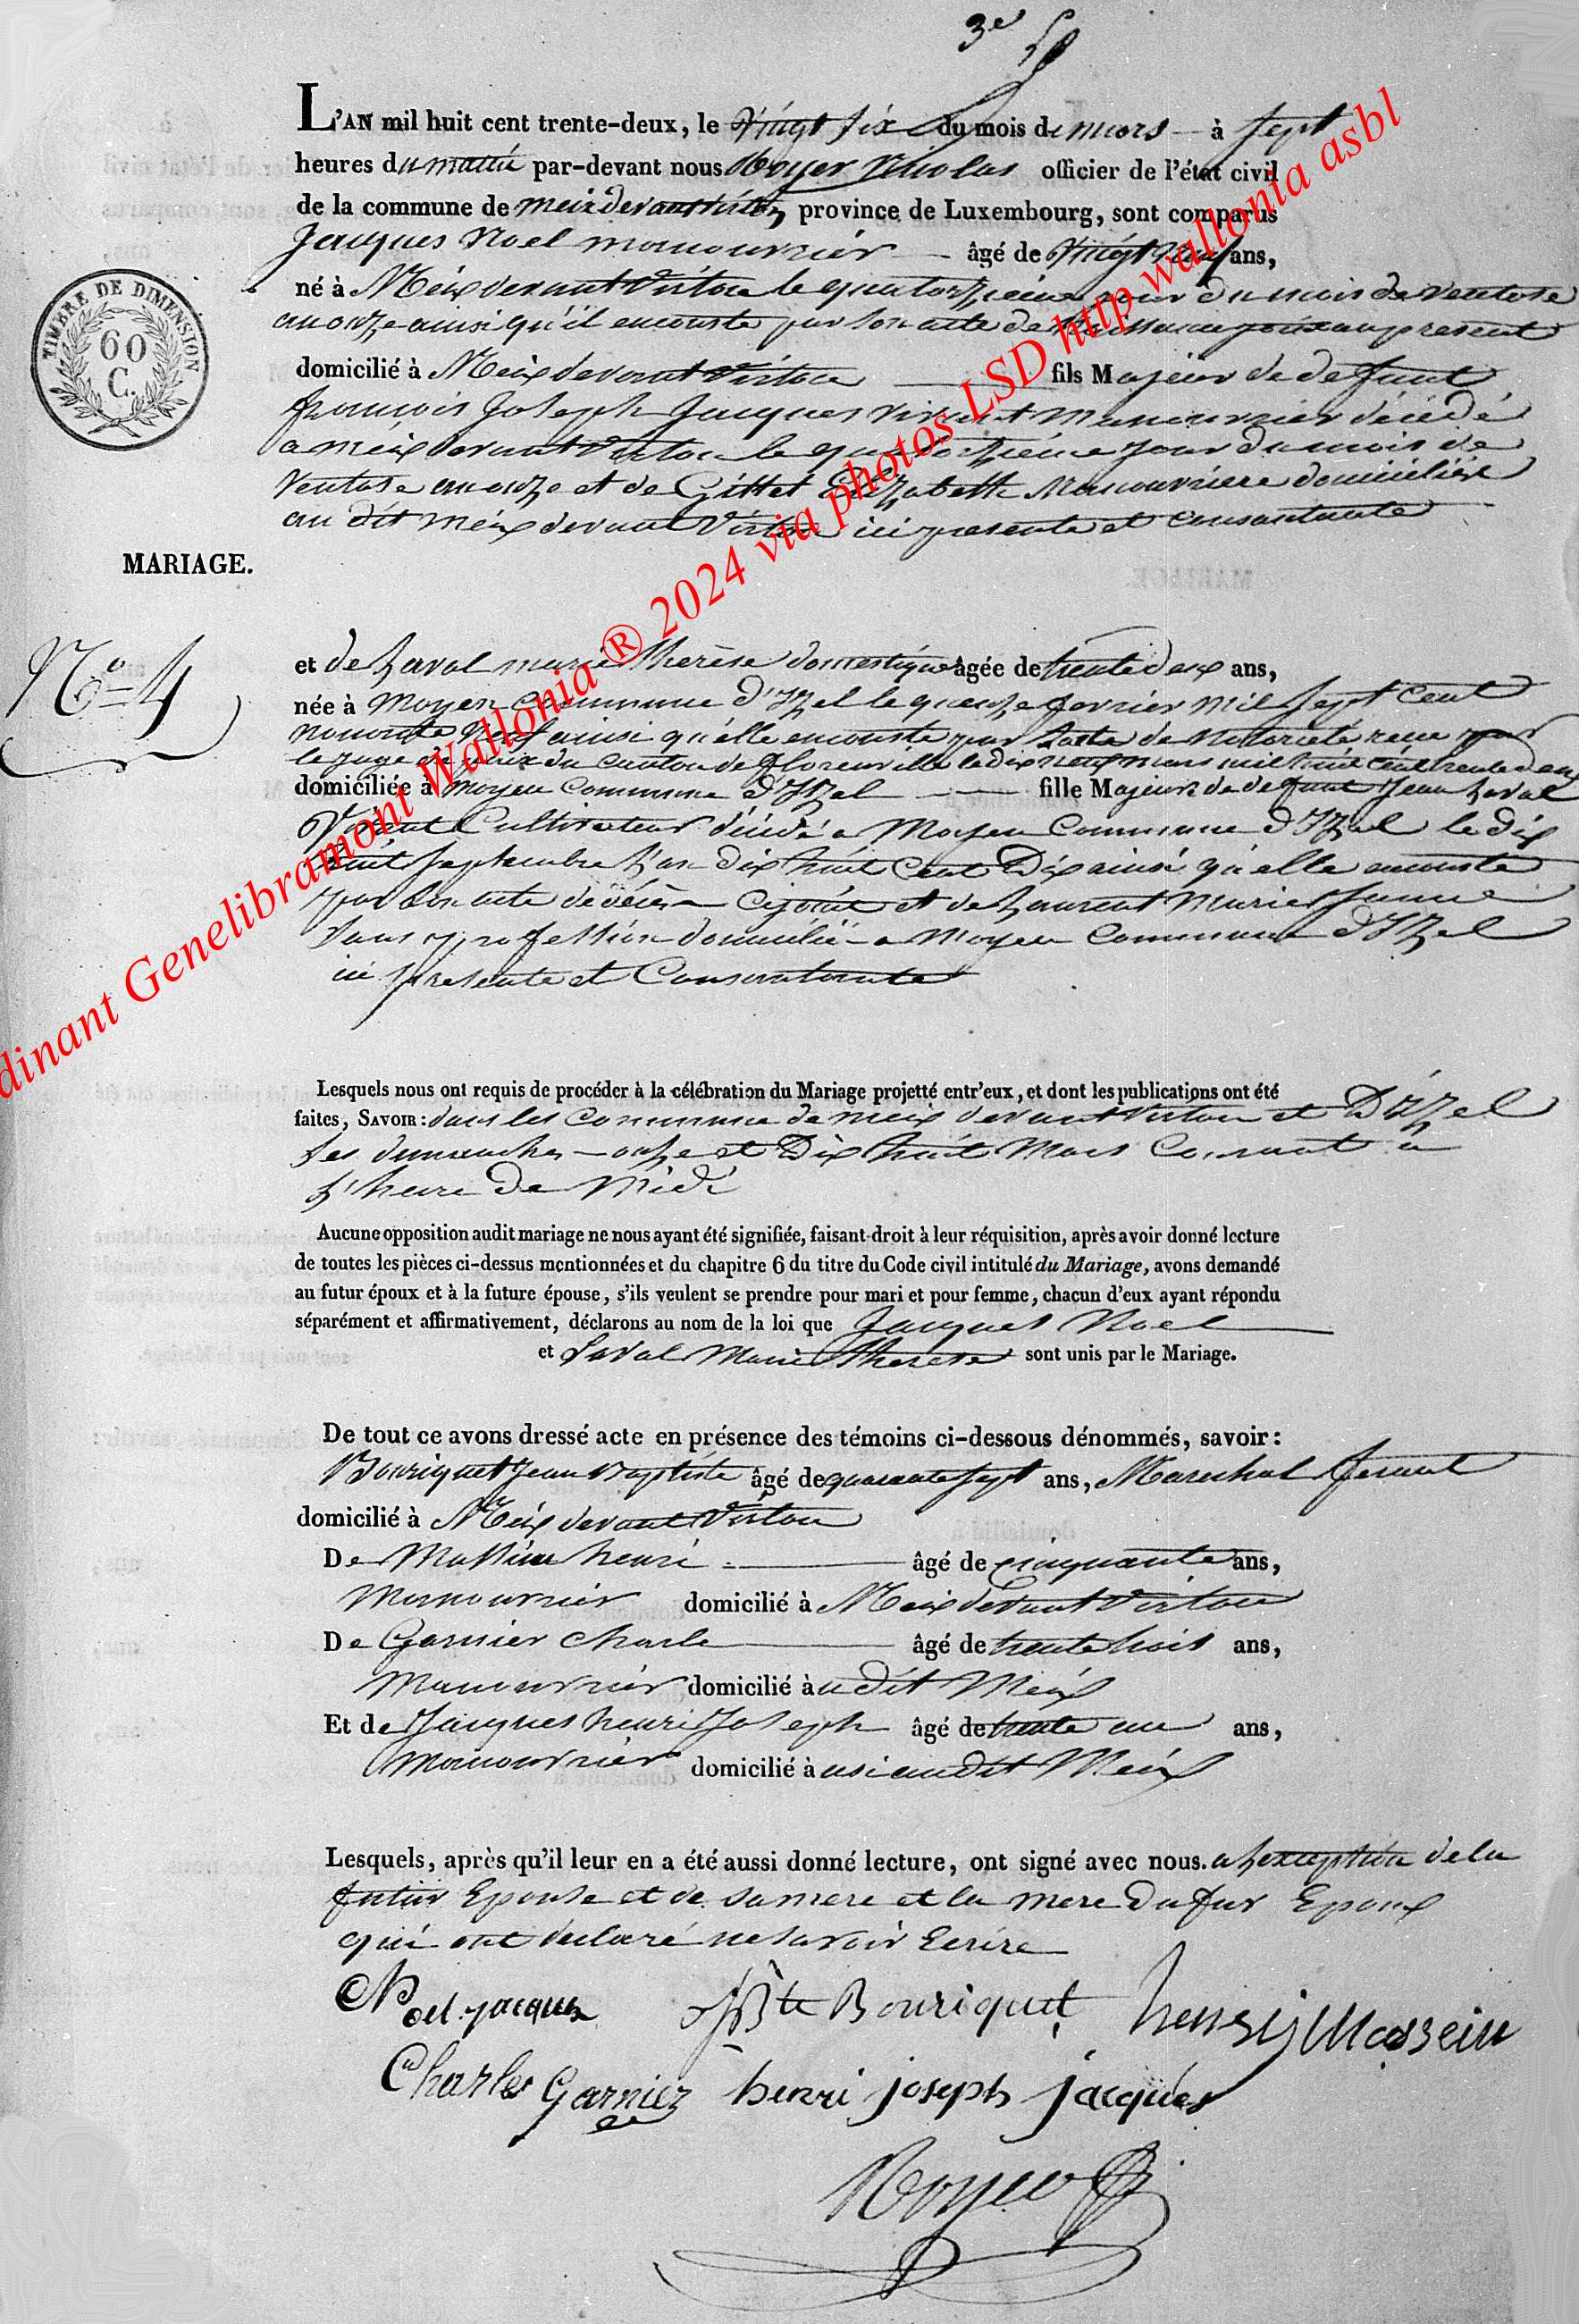 3e
L'AN mil huit cent trente-deux, le Vingt six du mois de mars à Sept
heures du matin par-devant nous Noyer Nicolas officier de l'état civil
de la commune de meix devant virton, province de Luxembourg, sont comparus
Jacques Noel manouvrier âgé de Vingt neuf ans,
né à Meix devant Virton le quatorzieme jour du mois de Ventose
an onze ainsi qu'il enconste par son acte de Naissance joint au present
domicilié à Meix devant Virton fils Majeur de defunt
françois Joseph Jacques vivant Manouvrier décédé
a meix devant Virton le quatorzieme jour du mois de
Ventose an onze et de Gillet Elizabeth Manouvriere domiciliée
au dit Meix devant Virton ici presente et Consantante
TIMBRE DE DIMENSION
60
C.
MARIAGE.
No 4
et de Laval marie thérèse domestique âgée de trente deux ans,
née à Moyen Commune d'Izel le quinze fevrier mil Sept Cent
nonante Neuf ainsi qu'elle enconste par l'acte de Notorieté recue par
le juge de paix du canton de florenville le dix neuf mars mil huit cent trente deux
domiciliée à Moyen Commune d'Izel fille Majeure de defunt Jean Laval
Vivant Cultivateur décédé a Moyen Commune d'Izel le dix
huit Septembre L'an dix huit Cent Dix ainsi qu'elle enconste
par son acte de décès Cijoint et de Laurent Marie Jeanne
Sans profession domicilié a Moyen Commune d'Izel
ici presente et Consantante
Lesquels nous ont requis de procéder à la célébration du Mariage projetté entr'eux, et dont les publications ont été
faites, SAVOIR: dans les Commune de meix devant Virton et D'izel
les dimanches onze et Dix huit Mars Courant a
L'heure De Midi
Aucune opposition audit mariage ne nous ayant été signifiée, faisant droit à leur réquisition, après avoir donné lecture
de toutes les pièces ci-dessus mentionnées et du chapitre 6 du titre du Code civil intitulé du Mariage, avons demandé
au futur époux et à la future épouse, s'ils veulent se prendre pour mari et pour femme, chacun d'eux ayant répondu
séparément et affirmativement, déclarons au nom de la loi que Jacques Noel
et Laval Marie Therese sont unis par le Mariage.
De tout ce avons dressé acte en présence des témoins ci-dessous dénommés, savoir:
Bouriquet Jean Baptiste âgé de quarante sept ans, Marechal ferrant
domicilié à Meix devant Virton
De Massin henri âgé de cinquante ans,
Manouvrier domicilié à Meix devant Virton
De Garnier Charle âgé de trente trois ans,
Manouvrier domicilié à u dit Meix
Et de Jacques henri Joseph âgé de trente un ans,
Manouvrier domicilié à usi audit Meix
Lesquels, après qu'il leur en a été aussi donné lecture, ont signé avec nous. a Lexception de la
futur Epouse et de sa mere et la mere Du fur Epoux
qui ont déclaré ne savoir Ecrire
Noel jacques JBte Bouriquet henry Massein
Charles Garniez henri joseph jacques
Noyer
dinant Genelibramont Wallonia ® 2024 via photos LSD http wallonia asbl